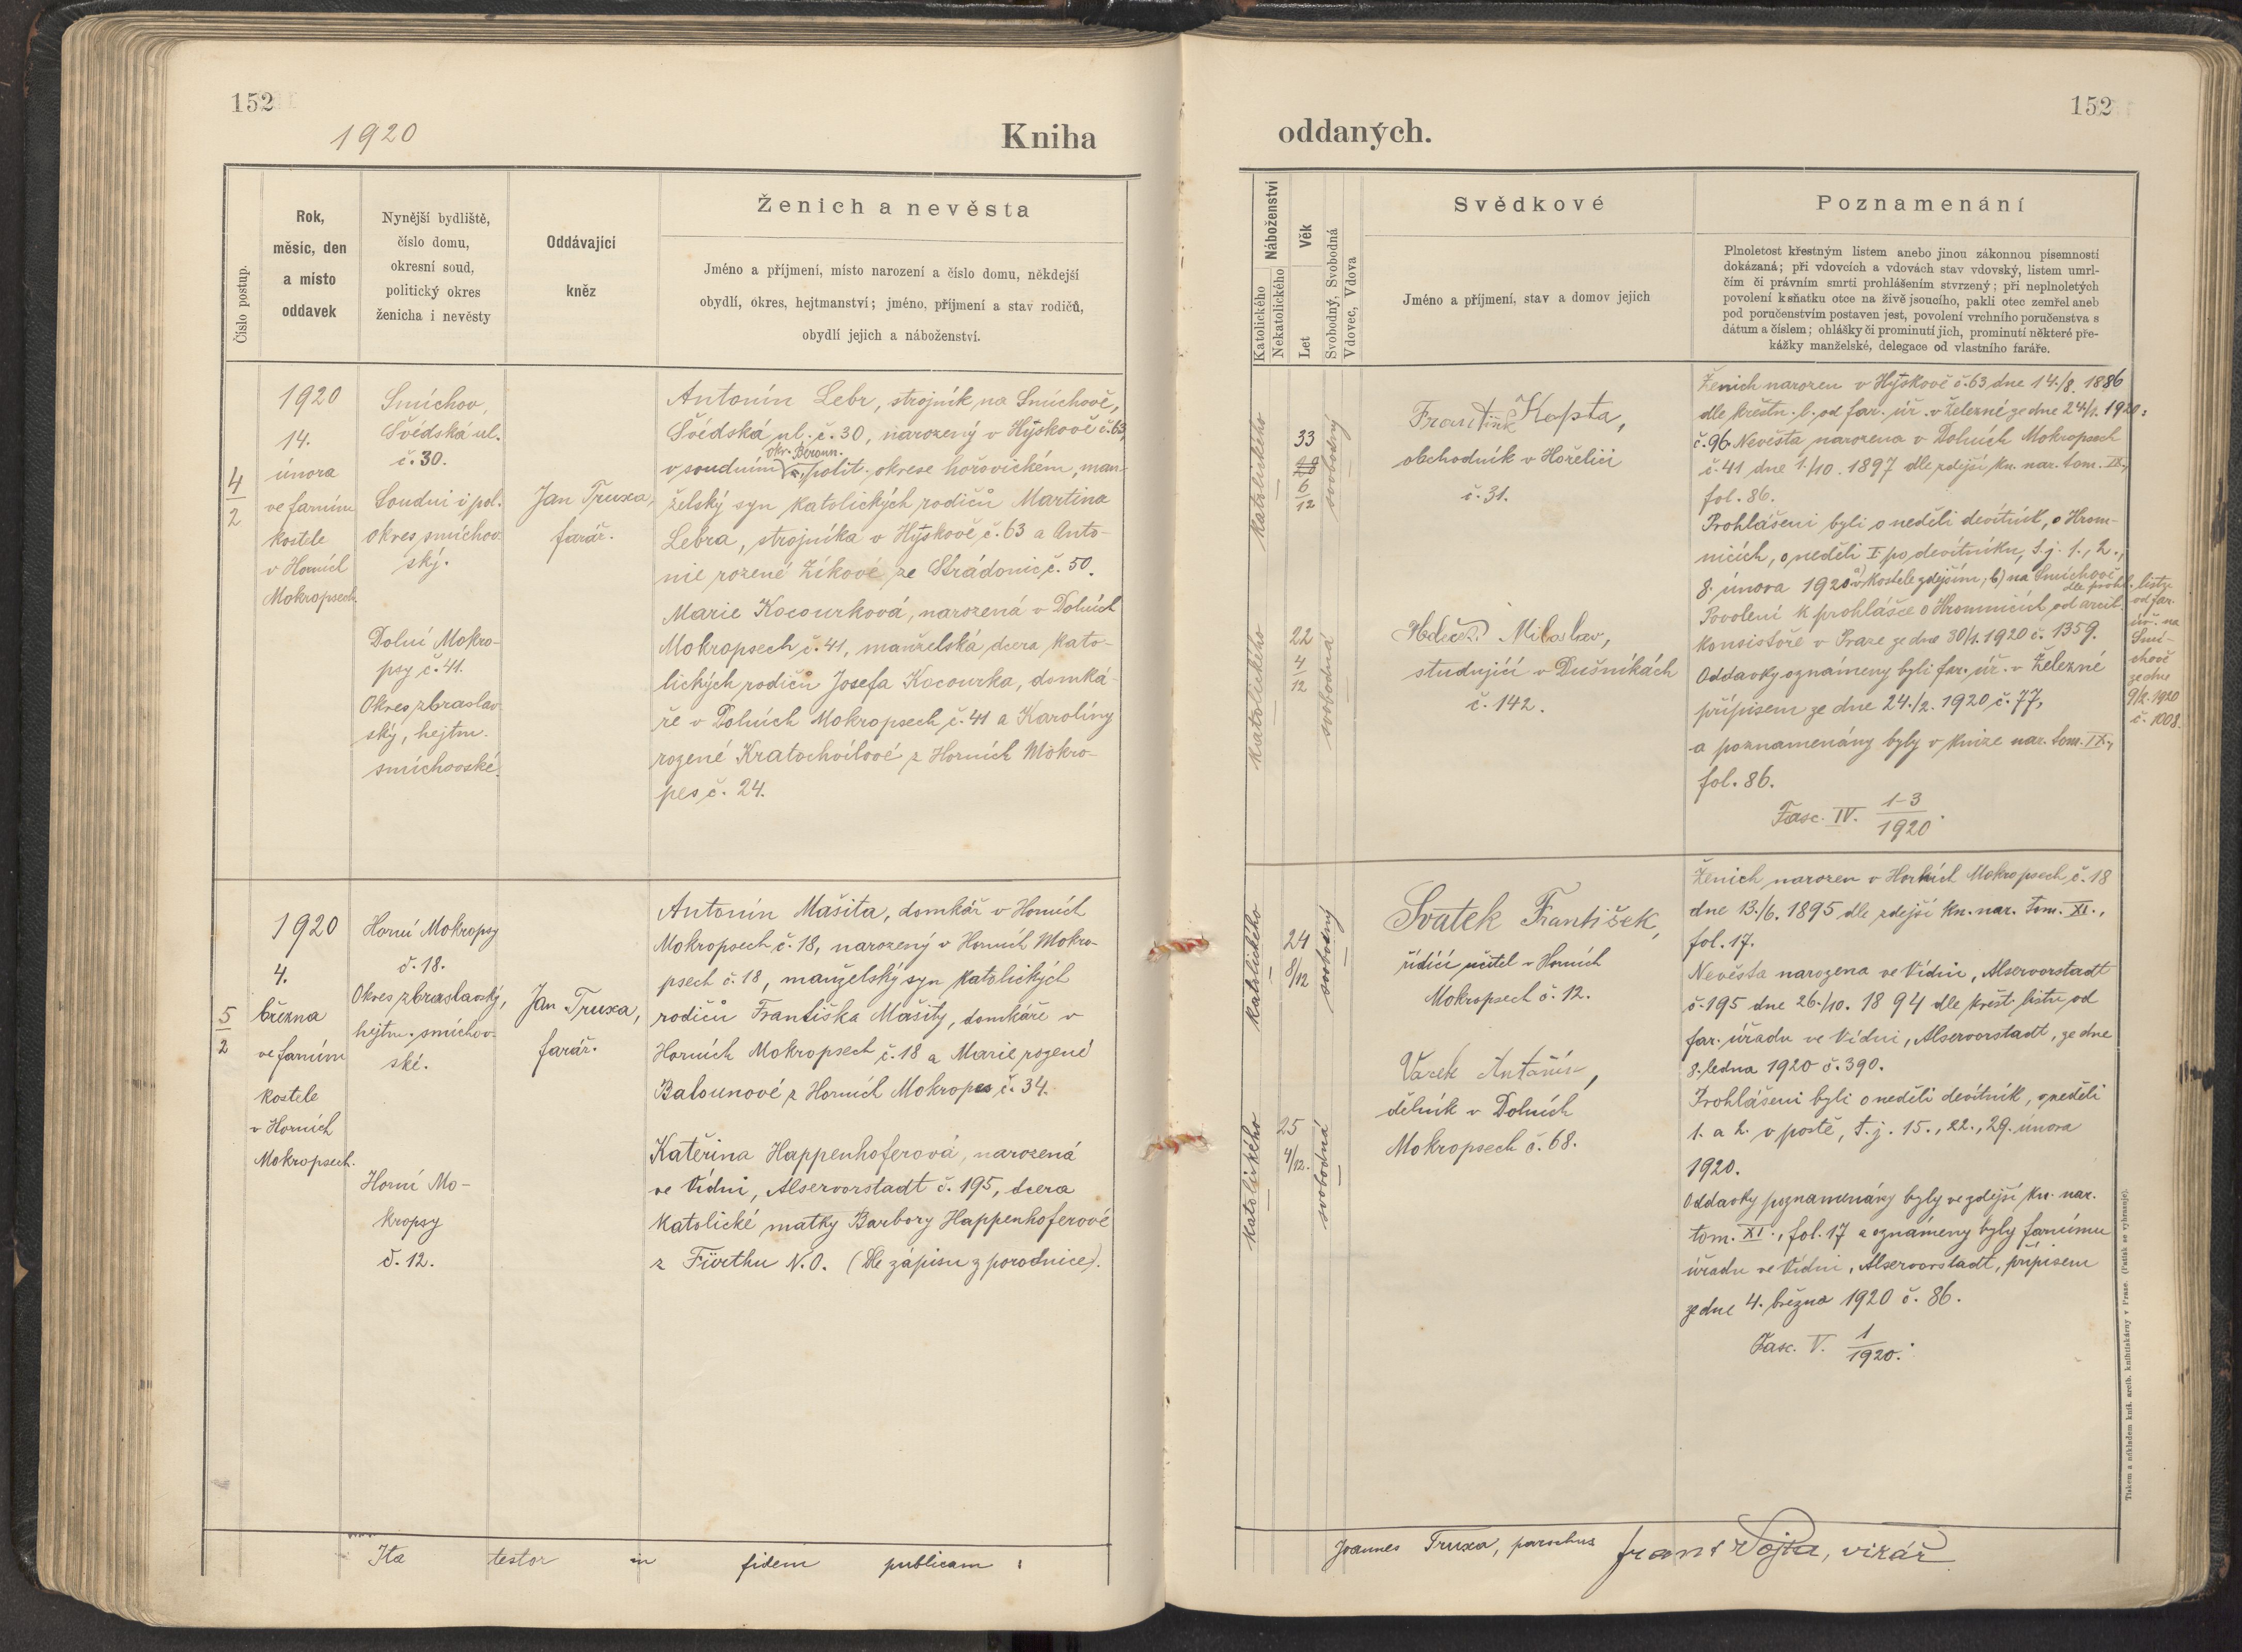 152
1920
Kniha
Číslo postup.
Rok,
měsíc, den
a místo
oddavek
Nynější bydliště,
číslo domu,
okresní soud,
politický okres
ženicha i nevěsty
Oddávající
kněz
Ženich a nevěsta
Jméno a příjmení, místo narození a číslo domu, někdejší
obydlí, okres, hejtmanství; jméno, příjmení a stav rodičů,
obydlí jejich a náboženství.
4
2
1920
14.
února
ve farním
kostele
v Horních
Mokropsech.
Smíchov,
Švédská ul.
č. 30.
Soudní i pol.
okres smíchov
ský.
Dolní Mokro-
psy č. 41.
Okres zbraslav
ský, hejtm.
smíchovské.
Jan Truxa,
farář.
Antonín Lebr, strojník na Smíchově,
Švédská ul. č. 30, narozený v Hýskově č. 63,
okr. Beroun.
v soudním polit. okrese hořovickém, man-
želský syn katolických rodičů Martina
Lebra, strojníka v Hýskově č. 63 a Anto-
nie rozené Zíkové ze Stradonic č. 50.
Marie Kocourková, narozená v Dolních
Mokropsech č. 41, manželská dcera kato-
lických rodičů Josefa Kocourka, domká-
ře v Dolních Mokropsech č. 41 a Karolíny
rozené Kratochvílové z Horních Mokro-
pes č. 24.
5
2
1920
4.
března
ve farním
kostele
v Horních
Mokropsech.
Horní Mokropsy
č. 18.
Okres zbraslavský,
hejtm. smíchov-
ské.
Horní Mo-
kropsy
č. 12.
Jan Truxa,
farář.
Antonín Mašita, domkář v Horních
Mokropsech č. 18, narozený v Horních Mokro-
psech č. 18, manželský syn katolických
rodičů Františka Mašity, domkáře v
Horních Mokropsech č. 18 a Marie rozené
Balounové z Horních Mokropes č. 34.
Kateřina Happenhoferová, narozená
ve Vídni, Alservorstadt č. 195, dcera
katolické matky Barbory Happenhoferové
z Fürthu N. O. (Dle zápisu z porodnice).
Ita testor in fidem publicam :
152
oddaných.
Náboženství
Katolického
Nekatolického
Věk
Let
Svobodný, Svobodná
Vdovec, Vdova
Svědkové
Jméno a příjmení, stav a domov jejich
Poznamenání
Plnoletost křestným listem anebo jinou zákonnou písemností
dokázaná; při vdovcích a vdovách stav vdovský, listem umrl-
čím či právním smrti prohlášením stvrzený; při neplnoletých
povolení k sňatku otce na živě jsoucího, pakli otec zemřel aneb
pod poručenstvím postaven jest, povolení vrchního poručenstva s
dátum a číslem; ohlášky či prominutí jich, prominutí některé pře-
kážky manželské, delegace od vlastního faráře.
katolického
33
6
12
svobodný
František Kopta,
obchodník v Hořelici
č. 31.
katolického
22
4
12
svobodná
Miloslav,
studující v Dušníkách
č. 142.
Ženich narozen v Hýskově č. 63 dne 14./8. 1886
dle křestn. l. od far. úř. v Železné ze dne 24/1. 1920.
č. 96. Nevěsta narozena v Dolních Mokropsech
č. 41 dne 1./10. 1897 dle zdejší kn. nar. tom. IX.,
fol. 86.
Prohlášeni byli o neděli devítník, o Hrom-
nicích, o neděli I. po devítníku, t. j. 1., 2.,
8. února 1920 a) v kostele zdejším, b) na Smíchově
dle prohl. listu
od far.
úř. na
Smí-
chově
ze dne
9/2. 1920
č. 1008.
Povolení k prohlášce o Hromnicích od arcib.
konsistoře v Praze ze dne 30/1. 1920 č. 1359.
Oddavky oznámeny byli far. úř. v Železné
přípisem ze dne 24./2. 1920 č. 77,
a poznamenány byly v knize nar. tom. IX.,
fol. 86.
Fasc. IV. 1-3
1920.
katolického
24
8/12
svobodný
Svatek František,
řídící učitel v Horních
Mokropsech č. 12.
katolického
25
4/12.
svobodná
Vašek Antonín,
dělník v Dolních
Mokropsech č. 68.
Ženich narozen v Horních Mokropsech č. 18
dne 13./6. 1895 dle zdejší kn. nar. Tom. XI.,
fol. 17.
Nevěsta narozena ve Vídni, Alservorstadt
č. 195 dne 26./10. 1894 dle křest. listu od
far. úřadu ve Vídni, Alservorstadt, ze dne
8. ledna 1920 č. 390.
Prohlášeni byli o neděli devítník, o neděli
1. a 2. v postě, t. j. 15., 22., 29. února
1920.
Oddavky poznamenány byly ve zdejší kn. nar.
tom. XI., fol. 17 a oznámeny byly farnímu
úřadu ve Vídni, Alservorstadt, přípisem
ze dne 4. března 1920 č. 86.
Fasc. V. 1
1920.
Joannes Truxa, parochus Frant Vojta, vikář
Tiskem a nákladem kníž. arcib. knihtiskárny v Praze. (Patisk se vyhrazuje).